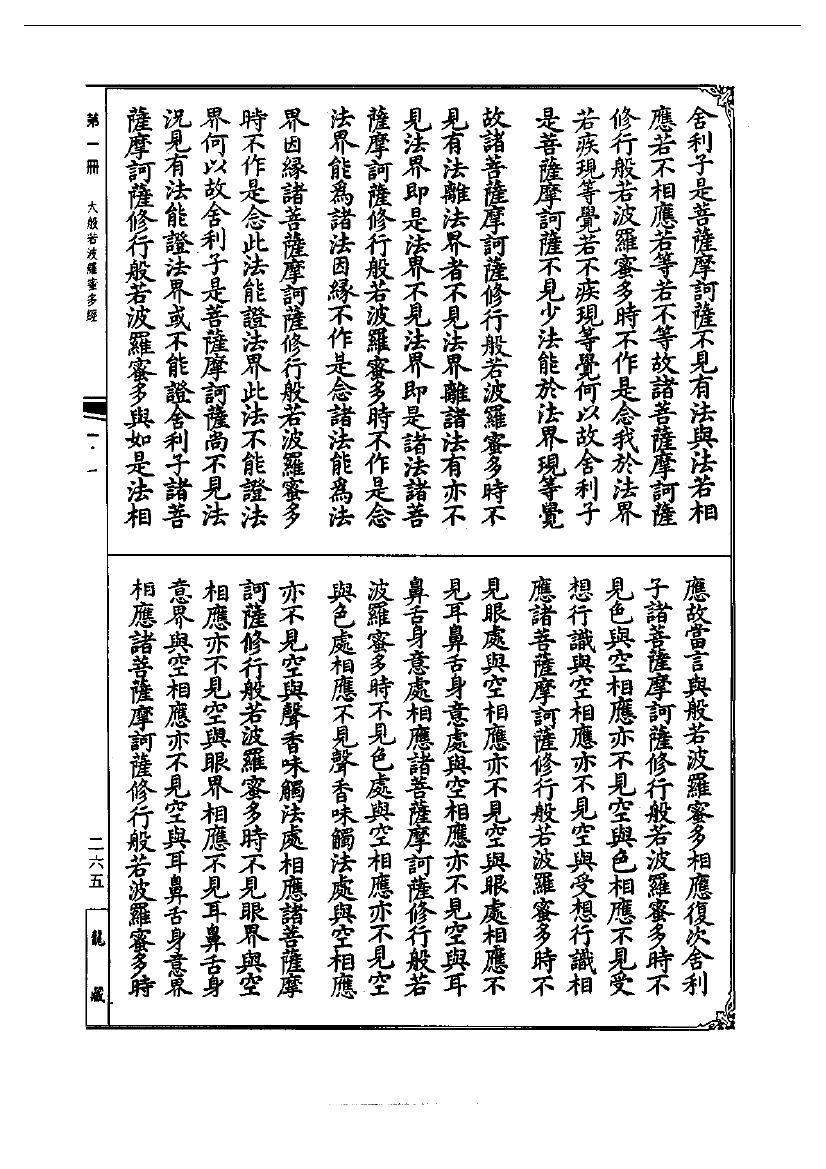 舍利子是菩薩摩訶薩不見有法與法若相
應若不相應若等若不等故諸菩薩摩訶薩
修行般若波羅蜜多時不作是念我於法界
若疾現等覺若不疾現等覺何以故舍利子
是菩薩摩訶薩不見少法能於法界現等覺
故諸菩薩摩訶薩修行般若波羅蜜多時不
見有法離法界者不見法界離諸法有亦不
見法界即是法界不見法界即是諸法諸菩
薩摩訶薩修行般若波羅蜜多時不作是念
法界能為諸法因緣不作是念諸法能為法
界因緣諸菩薩摩訶薩修行般若波羅蜜多
時不作是念此法能證法界此法不能證法
界何以故舍利子是菩薩摩訶薩尚不見法
況見有法能證法界或不能證舍利子諸菩
薩摩訶薩修行般若波羅蜜多與如是法相
應故當言與般若波羅蜜多相應復次舍利
子諸菩薩摩訶薩修行般若波羅蜜多時不
見色與空相應亦不見空與色相應不見受
想行識與空相應亦不見空與受想行識相
應諸菩薩摩訶薩修行般若波羅蜜多時不
見眼處與空相應亦不見空與眼處相應不
見耳鼻舌身意處與空相應亦不見空與耳
鼻舌身意處相應諸菩薩摩訶薩修行般若
波羅蜜多時不見色處與空相應亦不見空
與色處相應不見聲香味觸法處與空相應
亦不見空與聲香味觸法處相應諸菩薩摩
訶薩修行般若波羅蜜多時不見眼界與空
相應亦不見空與眼界相應不見耳鼻舌身
意界與空相應亦不見空與耳鼻舌身意界
相應諸菩薩摩訶薩修行般若波羅蜜多時
第一冊 大般若波羅蜜多經
一·一
二六五
龍藏